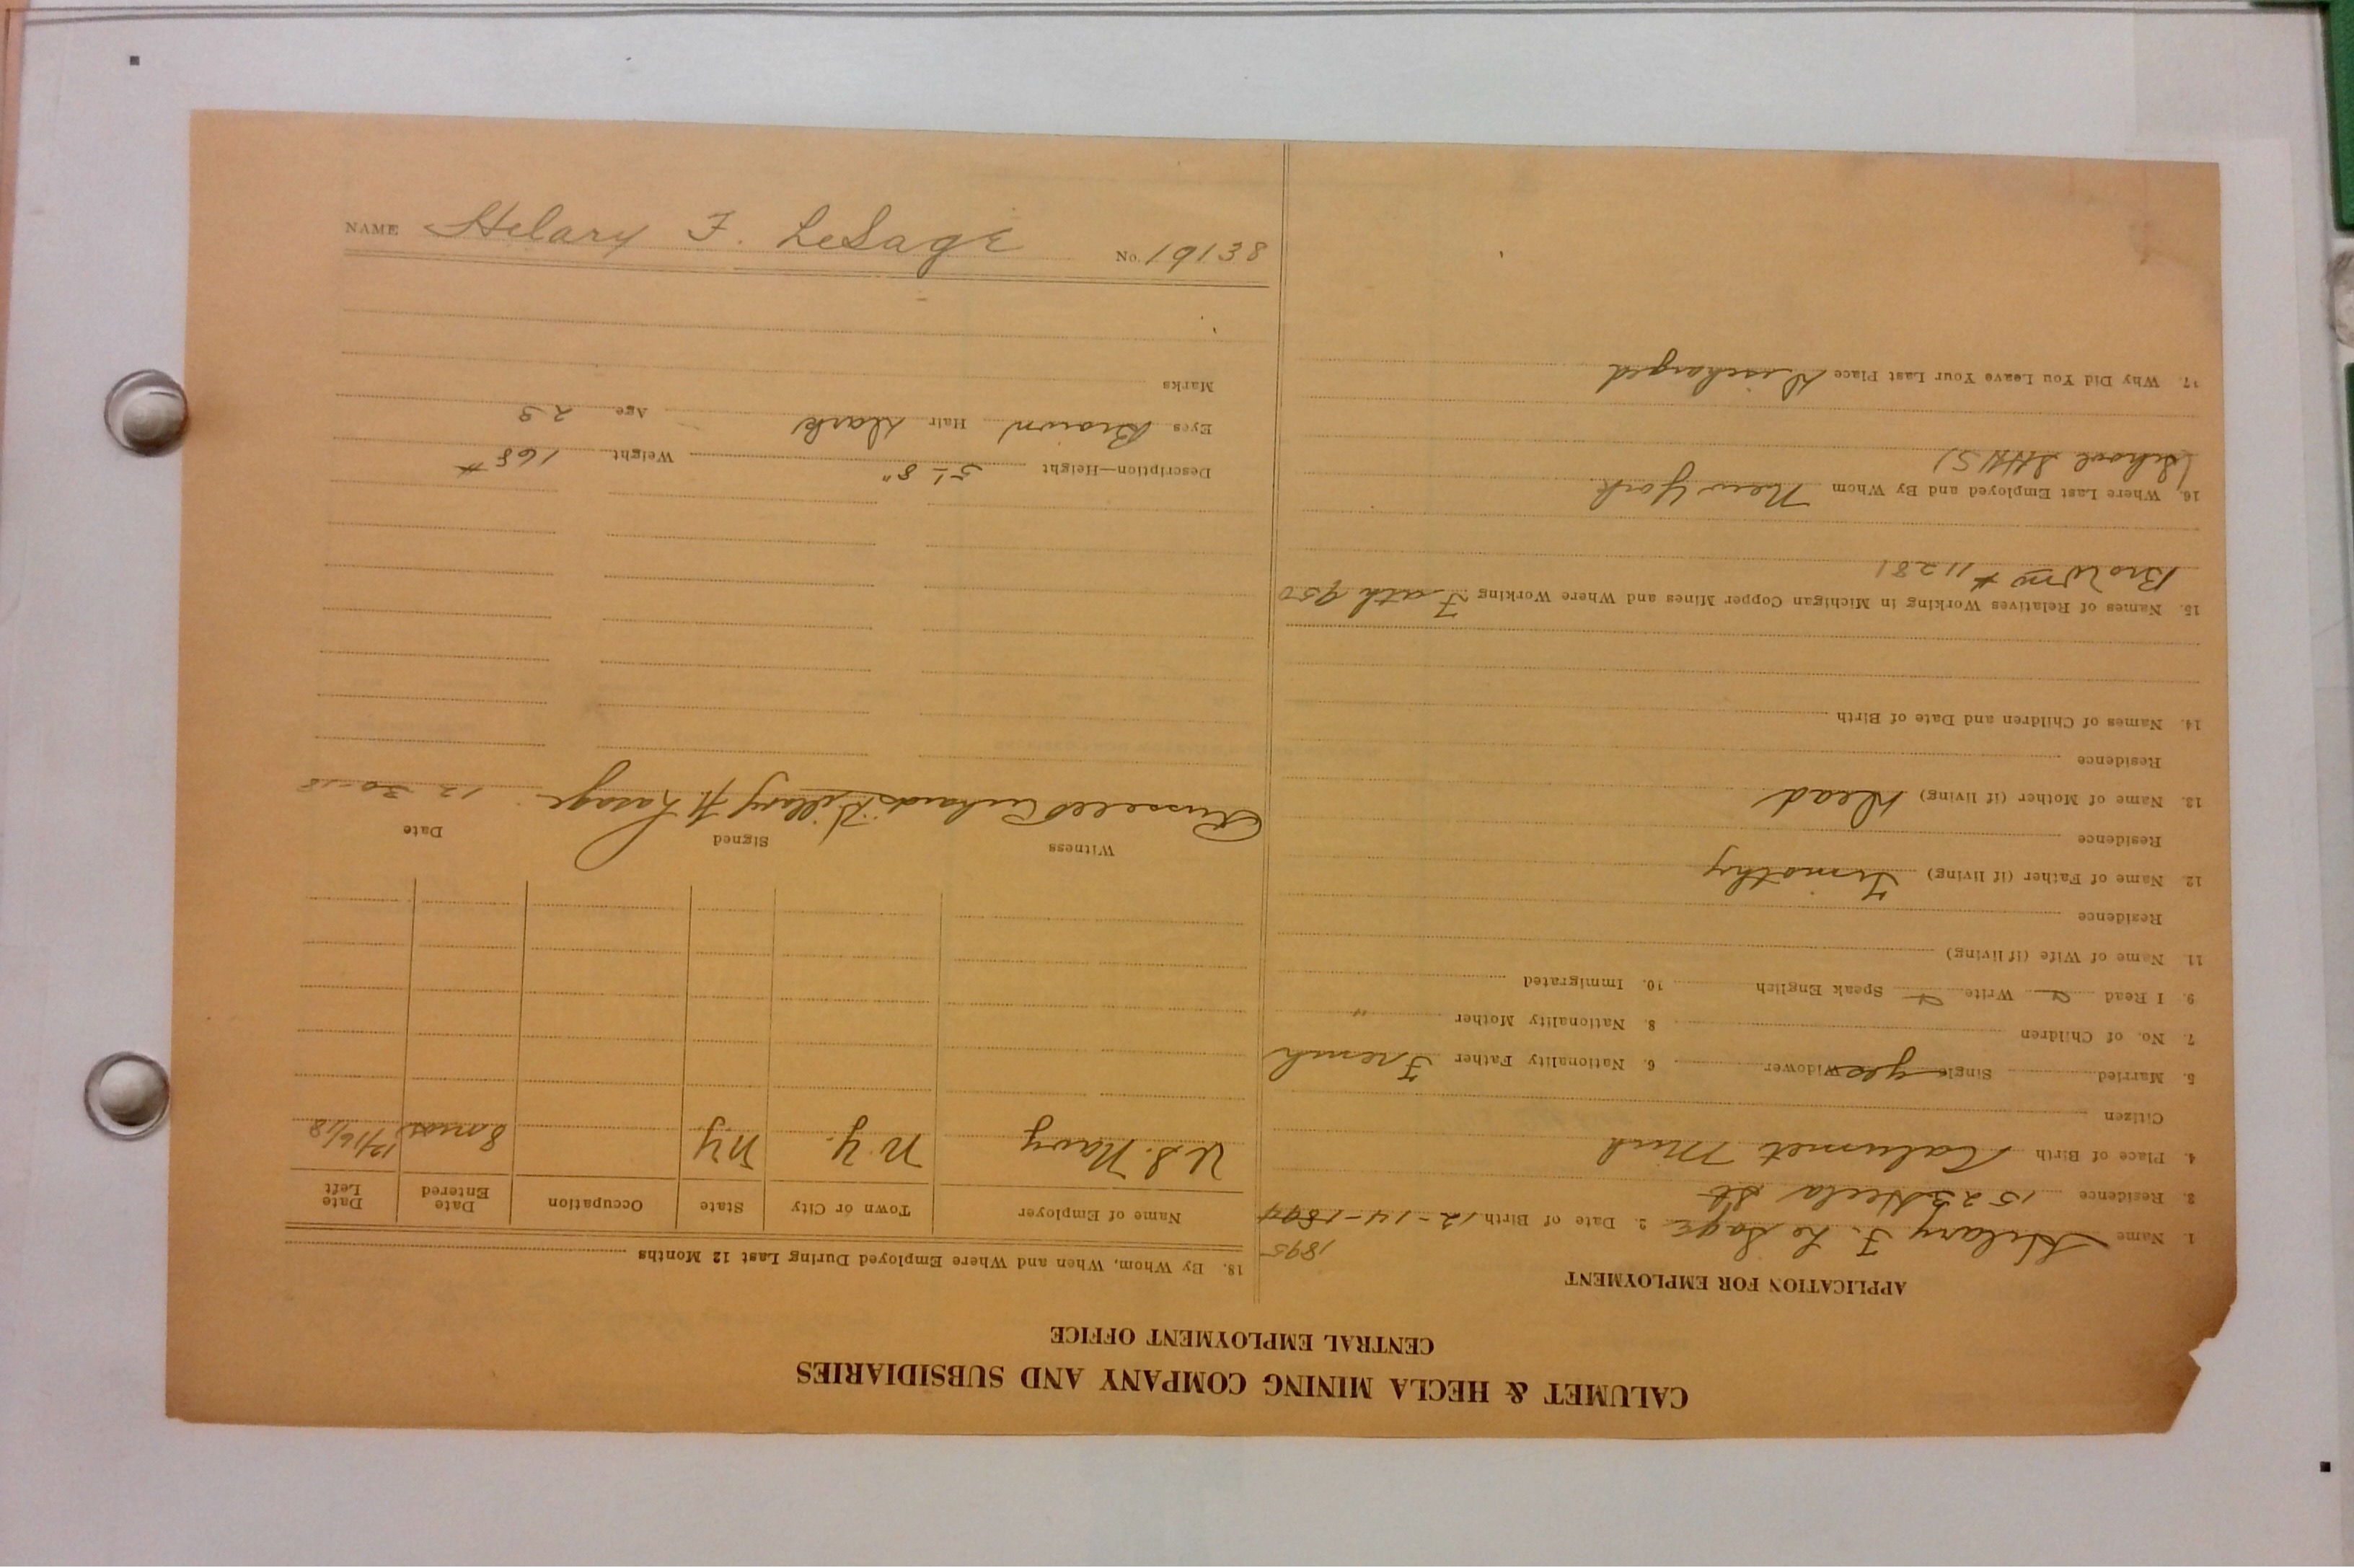 CALUMET & HECLA MINING COMPANY AND SUBSIDIARIES
CENTRAL EMPLOYMENT OFFICE
APPLICATION FOR EMPLOYMENT
1895
1. Name Hilary F. Le Sage 2. Date of Birth 12-14-1894
3. Residence 1523 Hecla St
4. Place of Birth Calumet Mich
Citizen
5. Married Single yes Widower 6. Nationality Father French
7. No. of Children 8. Nationality Mother "
9. I Read Write Speak English 10. Immigrated
11. Name of Wife (if living)
Residence
12. Name of Father (if living) Timothy
Residence
13. Name of Mother (if living) Dead
Residence
14. Names of Children and Date of Birth
15. Names of Relatives Working in Michigan Copper Mines and Where Working Fath 950
Bro Wm # 11281
16. Where Last Employed and By Whom New York
(School
17. Why Did You Leave Your Last Place Discharged
18. By Whom, When and Where Employed During Last 12 Months
Name of Employer Town or City State Occupation Date Entered Date Left
U.S. Navy N.Y. NY 8 mos 12/16/18
Witness Signed Date
Russell Hilary F. Lesage 12-30-18
Description—Height 5'-8" Weight 168 #
Eyes Brown Hair Dark Age 23
Marks
NAME Hilary F. LeSage No. 19138